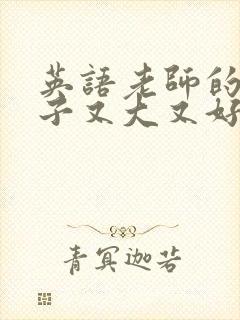 英語老師的
子又大又好
青冥迦若